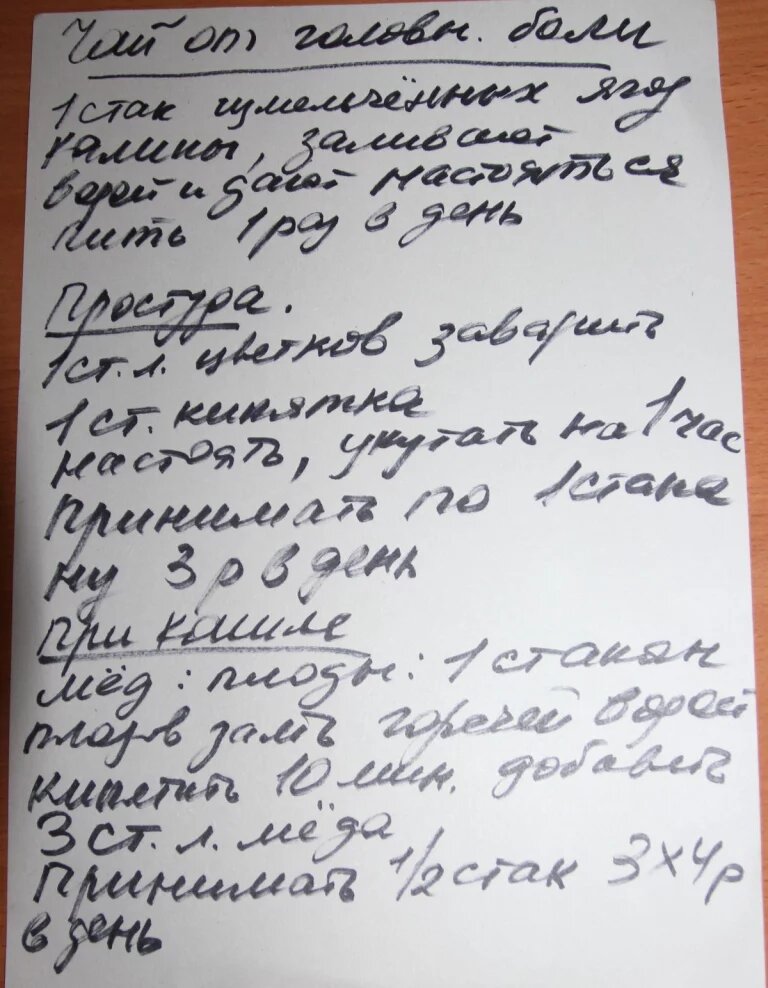 Чай от головн. боли
1 стак измельчённых ягод
калины, заливают
водой и дают настояться
пить 1 раз в день
Простуда.
1 ст. л. цветков заварить
1 ст. кипятка
настоять, укутать на 1 час
принимать по 1 стака
ну 3 р в день
При кашле
мёд : плоды : 1 стакан
плодов залть горячей водой
кипятить 10 мин. добавить
3 ст. л. мёда
Принимать 1/2 стак 3х4р
в день